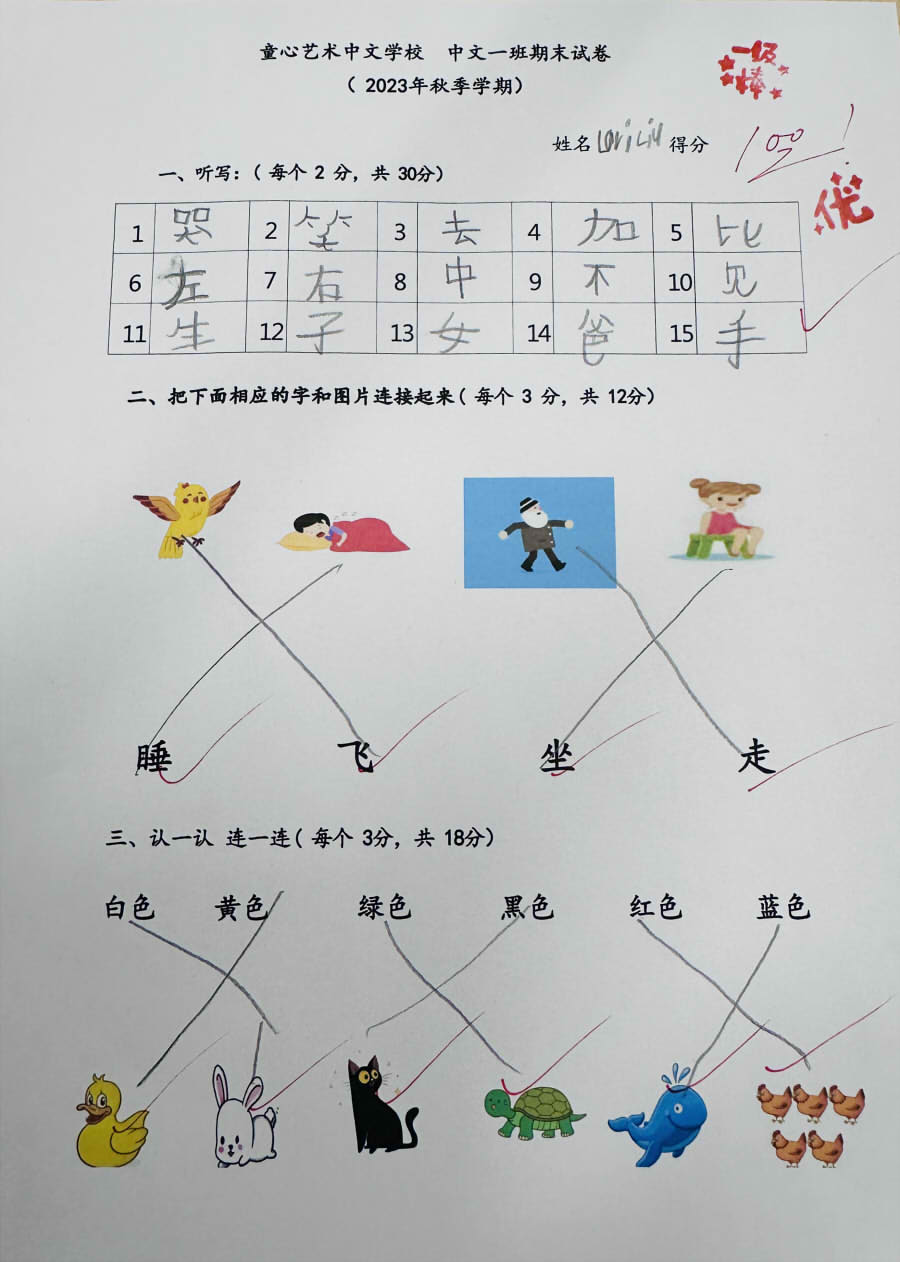 童心艺术中文学校 中文一班期末试卷
（ 2023年秋季学期）
一级
棒
姓名 Lori Liu 得分 100!
优
一、听写：（ 每个 2 分，共 30分）
1 哭 2 笑 3 去 4 加 5 比
6 左 7 右 8 中 9 不 10 见
11 生 12 子 13 女 14 爸 15 手
二、把下面相应的字和图片连接起来（ 每个 3 分，共 12分）
睡 飞 坐 走
三、认一认 连一连（ 每个 3分，共 18分）
白色 黄色 绿色 黑色 红色 蓝色